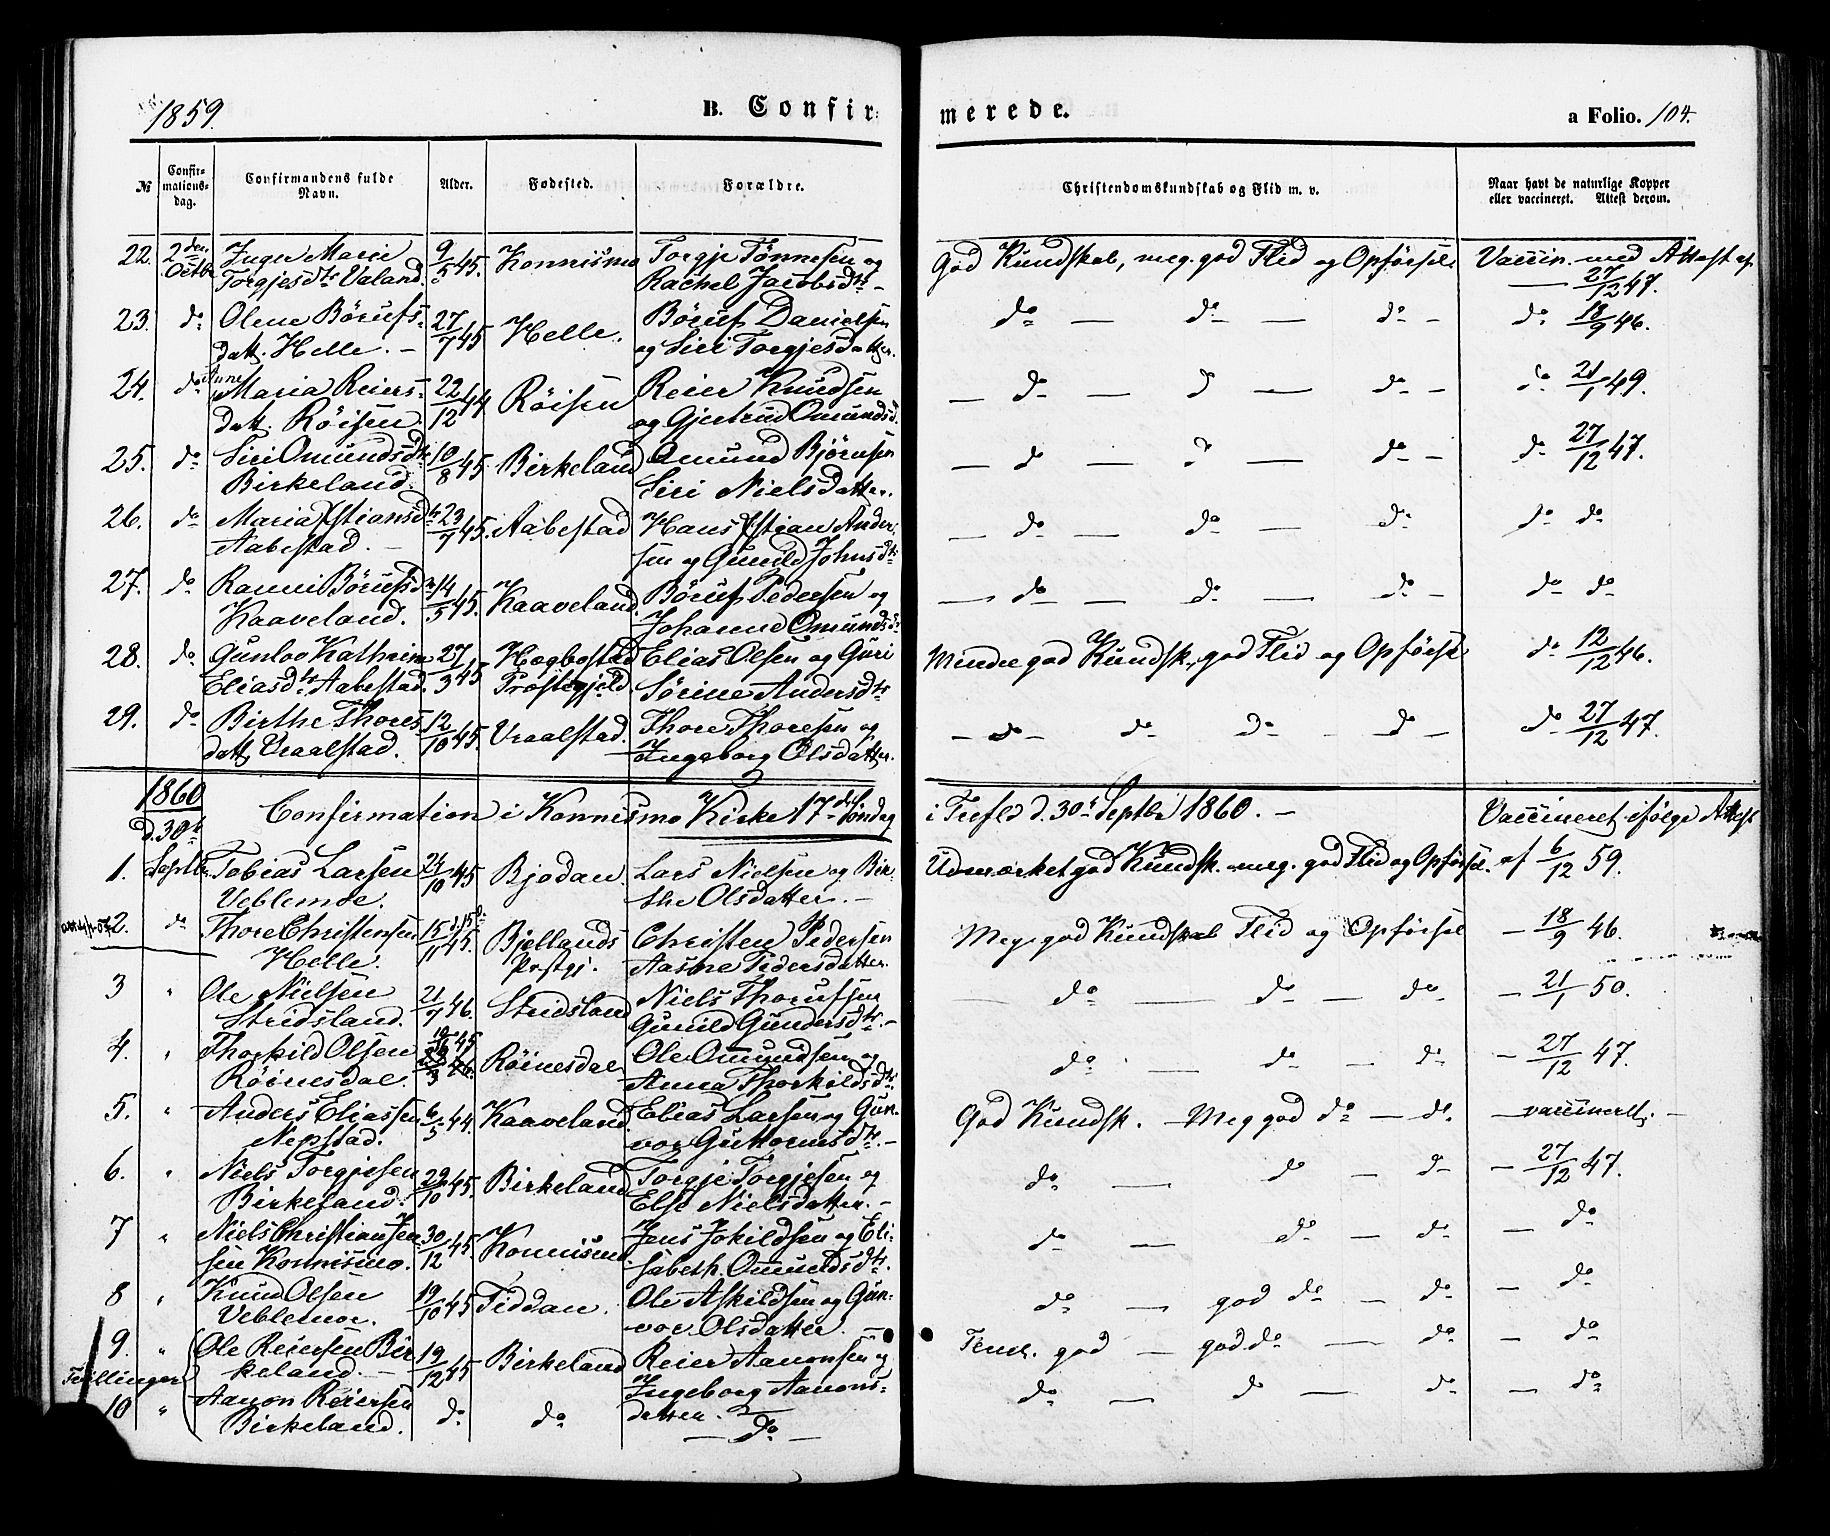 1859.
B. Confirmerede.
a Folio. 104.
№
Confirmationsdag.
Confirmandens fulde Navn.
Alder.
Fødested.
Forældre.
Christendomskundskab og Flid m. v.
Naar havt de naturlige Kopper eller vaccineret. Attest derom.
22. 2den Octbr Inger Marie 9/5 45. Konnismo Torgje Tønnesen og God Kundskab, meg. god Flid og Opførsel Vaccin. med Attest af
Torgjesdtr Valand. Rachel Jacobsdtr – — 27/12 47.
23. do Olene Børufs- 27/7 45 Helle. Børuf Danielsen do — do — do – do 18/9 46.
datt. Helle. – og Siri Torgjesdatter.
24. do Anne Maria Reiers- 22/12 44 Røisen Reier Knudsen — do — do — do – do 21/1 49.
datt. Røisen og Gjertrud Omundsd.
25. do Siri Omundsdtr 10/8 45. Birkeland Omund Bjørnsen — do — do — do – do 27/12 47.
Birkeland. Siri Nielsdatter.
26. do Maria Xstiansdtr 23/7 45. Aabestad Hans Xstian Ander- — do — do — do do do
Aabestad. – sen og Gunild Johnsdtr
27. do Ranni Børufsdtr 14/5 45. Kaaveland. Børuf Pedersen og — do — do — do – do do
Kaaveland. Johanne Omundsdr
28. do Gunloo Kathrine 27/3 45 Hægbostad Elias Olsen og Guri Mindre god Kundsk., god Flid og Opførsel do 12/12 46.
Eliasdtr Aabestad. Præstegjeld. Sørine Andersdtr
29. do Birthe Thores- 12/10 45. Vraalstad. Thore Thoresen og – do – do do – do – do 27/12 47.
datt. Vraalstad. Ingeborg Olsdatter.
1860 Confirmation i Konnismo Kirke 17de Søndag i Trefld d. 30te Septbr 1860. – Vaccineret ifølge Attest
d. 30te
1. Septbr Tobias Larsen 24/10 45 Bjodan. Lars Nielsen og Bir- Udmærket god Kundsk. meg. god Flid og Opførsel. af 6/12 59.
Veblemoe. the Olsdatter. –
2. do Thore Christensen 15/11 45. Bjellands Christen Pedersen Meg. god Kundskab Flid og Opførsel – 18/9 46.
Helle. Prstgj. Aasne Pedersdatter.
3 " Ole Nielsen 21/7 46. Stridsland Niels Thorufsen do — do – do – 21/1 50.
Stridsland. Gunild Gundersdtr –
4. " Thorkild Olsen 45 Røinesdal Ole Omundsen og do – do – do – 27/12 47.
Røinesdal. Anna Thorkildsdtr
5. " Anders Eliassen 6/3 44. Kaaveland. Elias Larsen og Gun- God Kundsk. – Meg god do – do – vaccineret. –
Nepstad. vor Guttormsdtr –
6. " Niels Torgjesen 29/10 45. Birkeland Torgje Torgjesen og do — do – do – 27/12 47.
Birkeland. Else Nielsdatter. –
7 " Niels Christian Jen- 30/12 45. Konnismo. Jens Jokildsen og Eli- do — do – do – do
sen Konnismo. sabeth Omundsdtr.
8 " Knud Olsen 19/10 45 Tiddan. Ole Askildsen og Gun- do — god do – do – do
Veblemoe. vor Olsdatter. –
9. " Ole Reiersen Bir- 19/12 45 Birkeland Reier Aanonsen og Tem. god – god do — do – do
Tvillinger keland. – Ingeborg Aanons-
10 " Aanon Reiersen do do datter. do — do — do – do
Birkeland. — do –